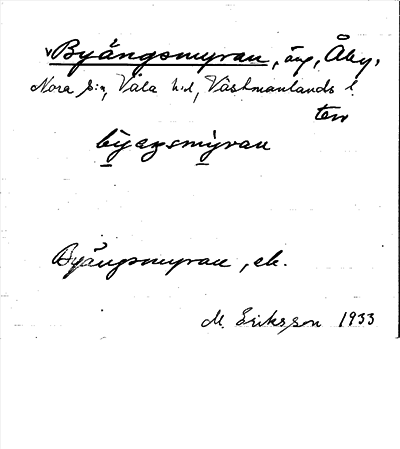 v Byängsmyran, äng, Åby,
Nora s:n, Våla h:d, Västmanlands l.
terr
byaŋsmyran
Byängsmyran, ek.
M. Eriksson 1933